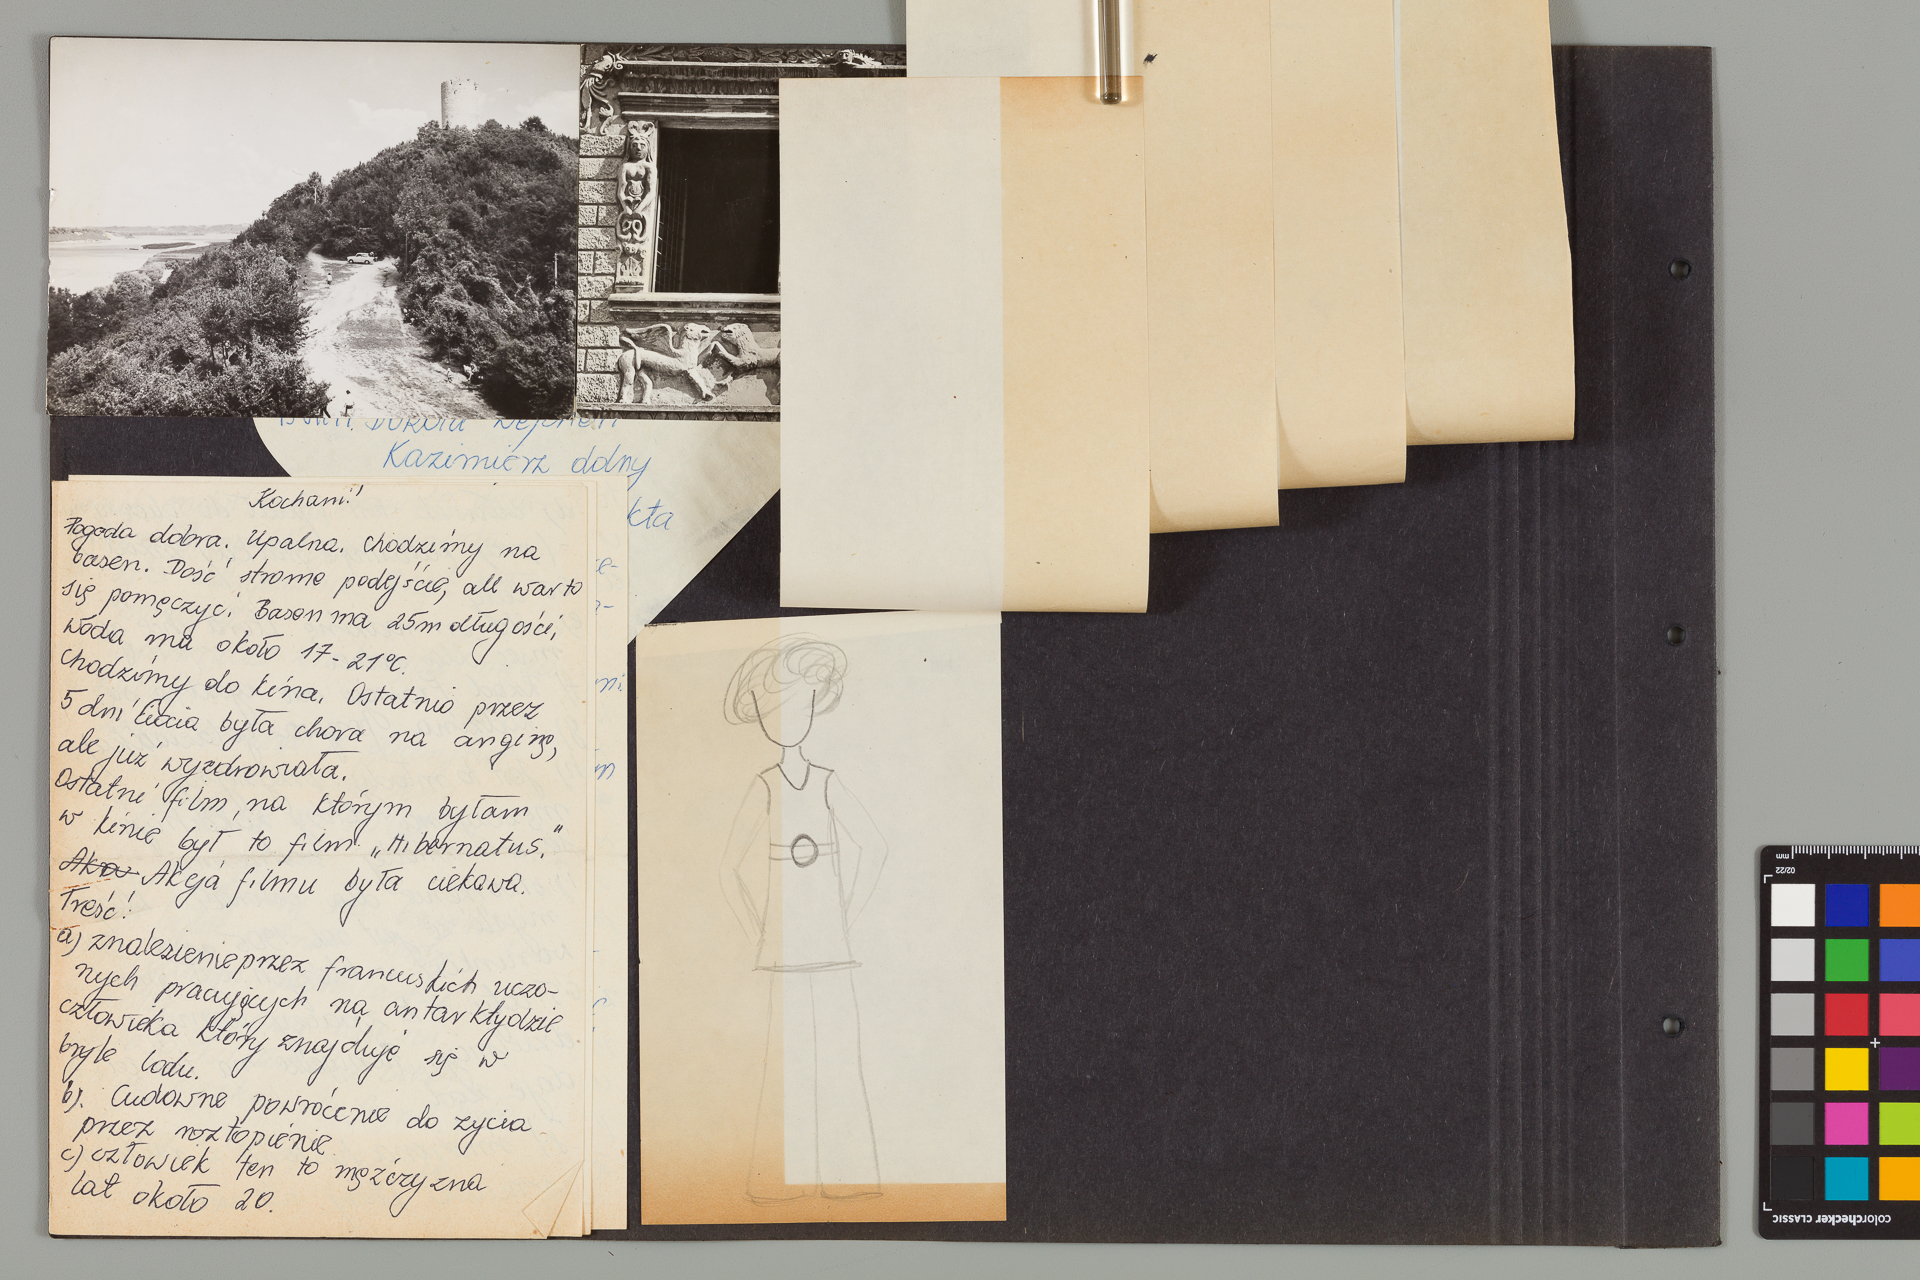 Kazimierz dolny
kta
Kochani!
Pogoda dobra. Upalna. Chodzimy na
basen. Dość strome podejście, ale warto
się pomęczyć. Basen ma 25m długości,
woda ma około 17-21°C.
Chodzimy do kina. Ostatnio przez
5 dni Ciocia była chora na anginę,
ale już wyzdrowiała.
Ostatni film, na którym byłam
w kinie był to film „Hibernatus."
Akcja filmu była ciekawa.
Treść!
a) znalezienie przez francuskich uczo-
nych pracujących na antarktydzie
człowieka który znajduje się w
bryle lodu.
b). Cudowne powrócenie do życia
przez roztopienie
c) człowiek ten to mężczyzna
lat około 20.
mm
02/22
colorchecker CLASSIC